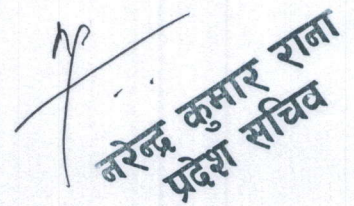 नरेन्द्र कुमार राना
प्रदेश सचिव